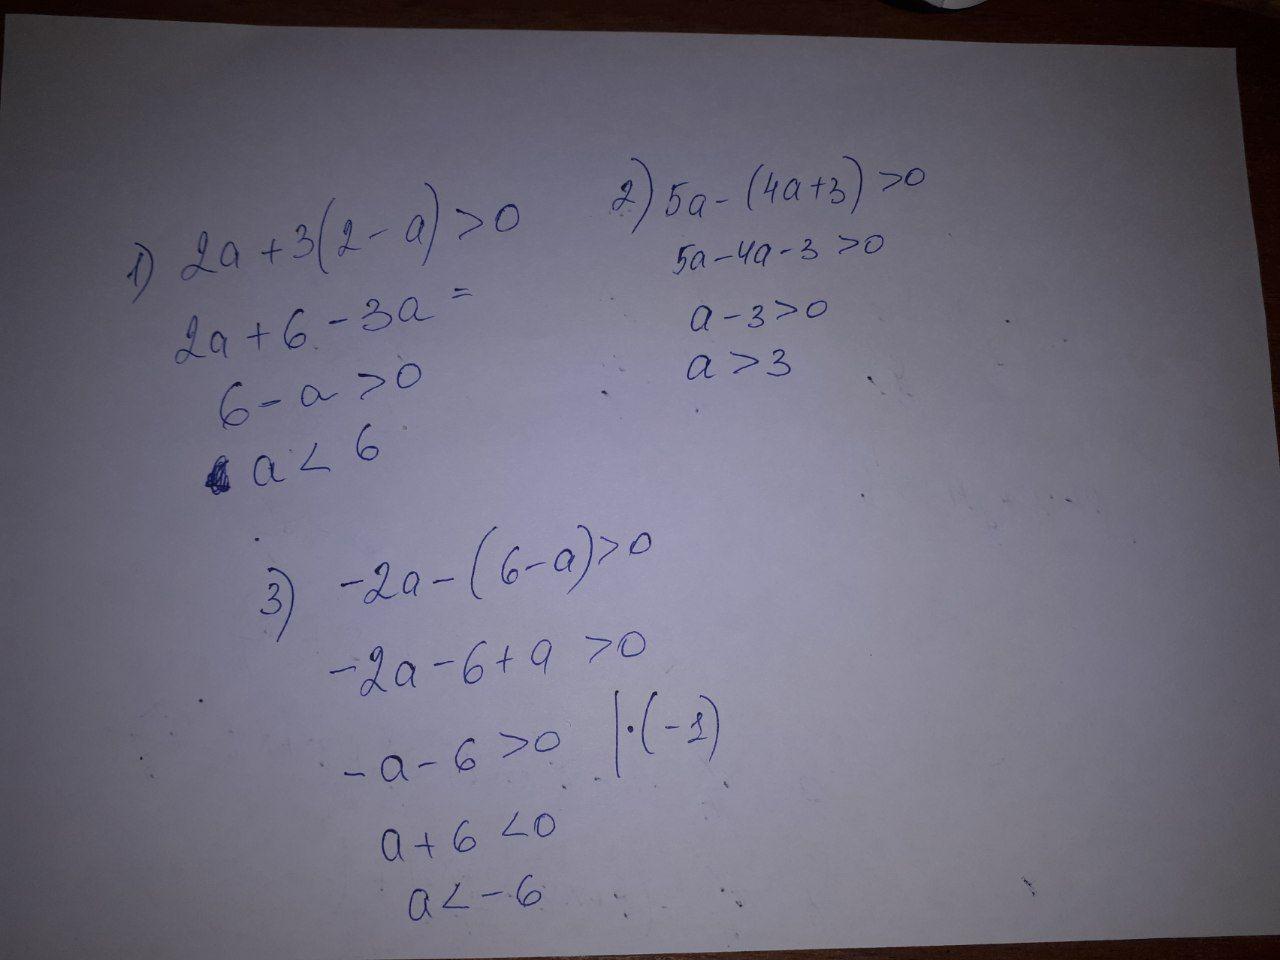 1) 2a + 3(2 - a) > 0
2a + 6 - 3a =
6 - a > 0
a < 6
2) 5a - (4a + 3) > 0
5a - 4a - 3 > 0
a - 3 > 0
a > 3
3) -2a - (6 - a) > 0
-2a - 6 + a > 0
-a - 6 > 0 | · (-1)
a + 6 < 0
a < -6